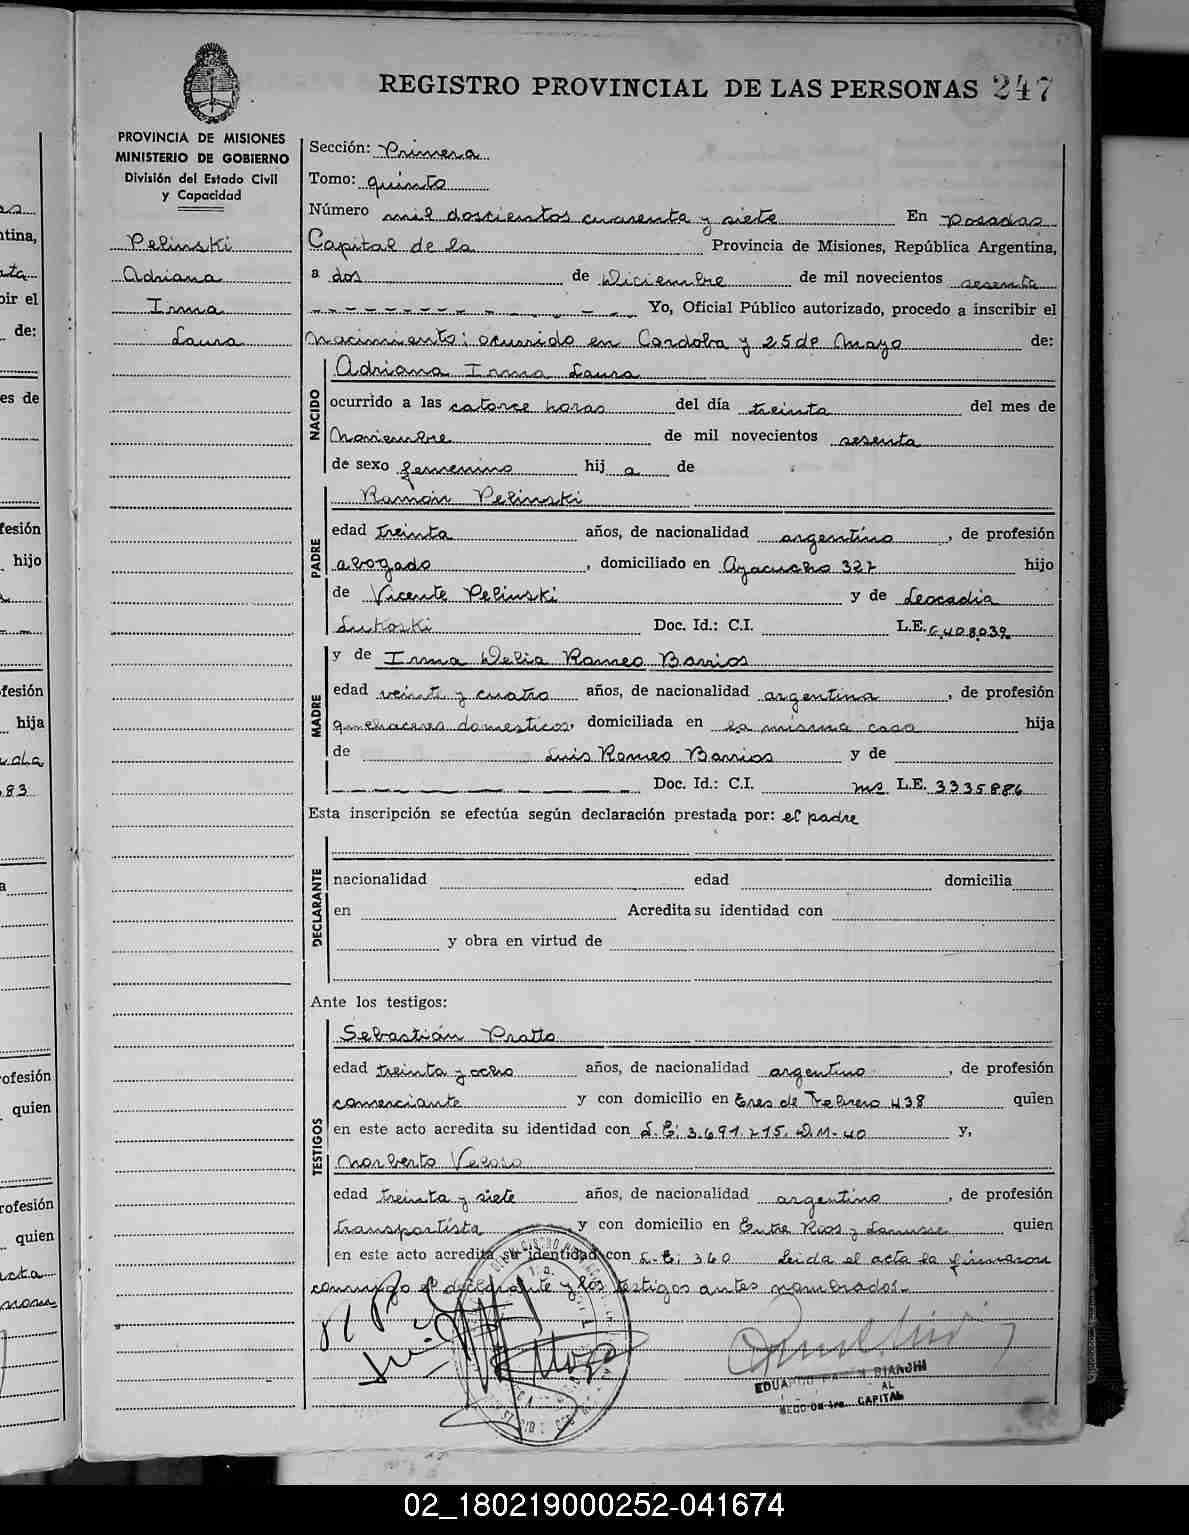 REGISTRO PROVINCIAL DE LAS PERSONAS 247
PROVINCIA DE MISIONES
MINISTERIO DE GOBIERNO
División del Estado Civil
y Capacidad
Pelinski
Adriana
Irma
Laura
Sección: Primera
Tomo: quinto
Número mil doscientos cuarenta y siete En Posadas
Capital de la Provincia de Misiones, República Argentina,
a dos de Diciembre de mil novecientos sesenta
Yo, Oficial Público autorizado, procedo a inscribir el
nacimiento: ocurrido en Cordoba y 25 de Mayo de:
NACIDO
Adriana Irma Laura
ocurrido a las catorce horas del día treinta del mes de
Noviembre de mil novecientos sesenta
de sexo femenino hij a de
PADRE
Ramón Pelinski
edad treinta años, de nacionalidad argentino, de profesión
abogado, domiciliado en Ayacucho 327 hijo
de Vicente Pelinski y de Leocadia
Lukoski Doc. Id.: C.I. L.E. 6.408.039
MADRE
y de Irma Delia Romeo Barrios
edad veinte y cuatro años, de nacionalidad argentina, de profesión
quehaceres domesticos, domiciliada en la misma casa hija
de Luis Romeo Barrios y de
Doc. Id.: C.I. L.E. 3335886
Esta inscripción se efectúa según declaración prestada por: el padre
DECLARANTE
nacionalidad edad domicilia
en Acredita su identidad con
y obra en virtud de
Ante los testigos:
TESTIGOS
Sebastián Pratto
edad treinta y ocho años, de nacionalidad argentino, de profesión
comerciante y con domicilio en Tres de Febrero 438 quien
en este acto acredita su identidad con L.E: 3.691.715. D.M-40 y,
Norberto Veloso
edad treinta y siete años, de nacionalidad argentino, de profesión
transportista y con domicilio en Entre Rios y Lanusse quien
en este acto acredita su identidad con L.E: 360 Leida el acta la firmaron
conmigo el declarante y los testigos antes nombrados.-
BIANCHI
CAPITAL
02_180219000252-041674